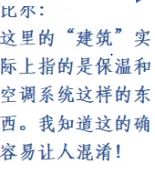 比尔：
这里的“建筑”实
际上指的是保温和
空调系统这样的东
西。我知道这的确
容易让人混淆！